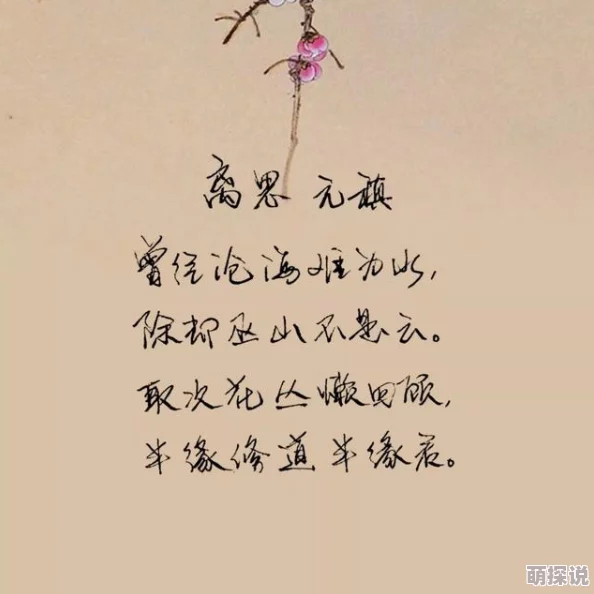 离思 元稹
曾经沧海难为水，
除却巫山不是云。
取次花丛懒回顾，
半缘修道半缘君。
萌探说